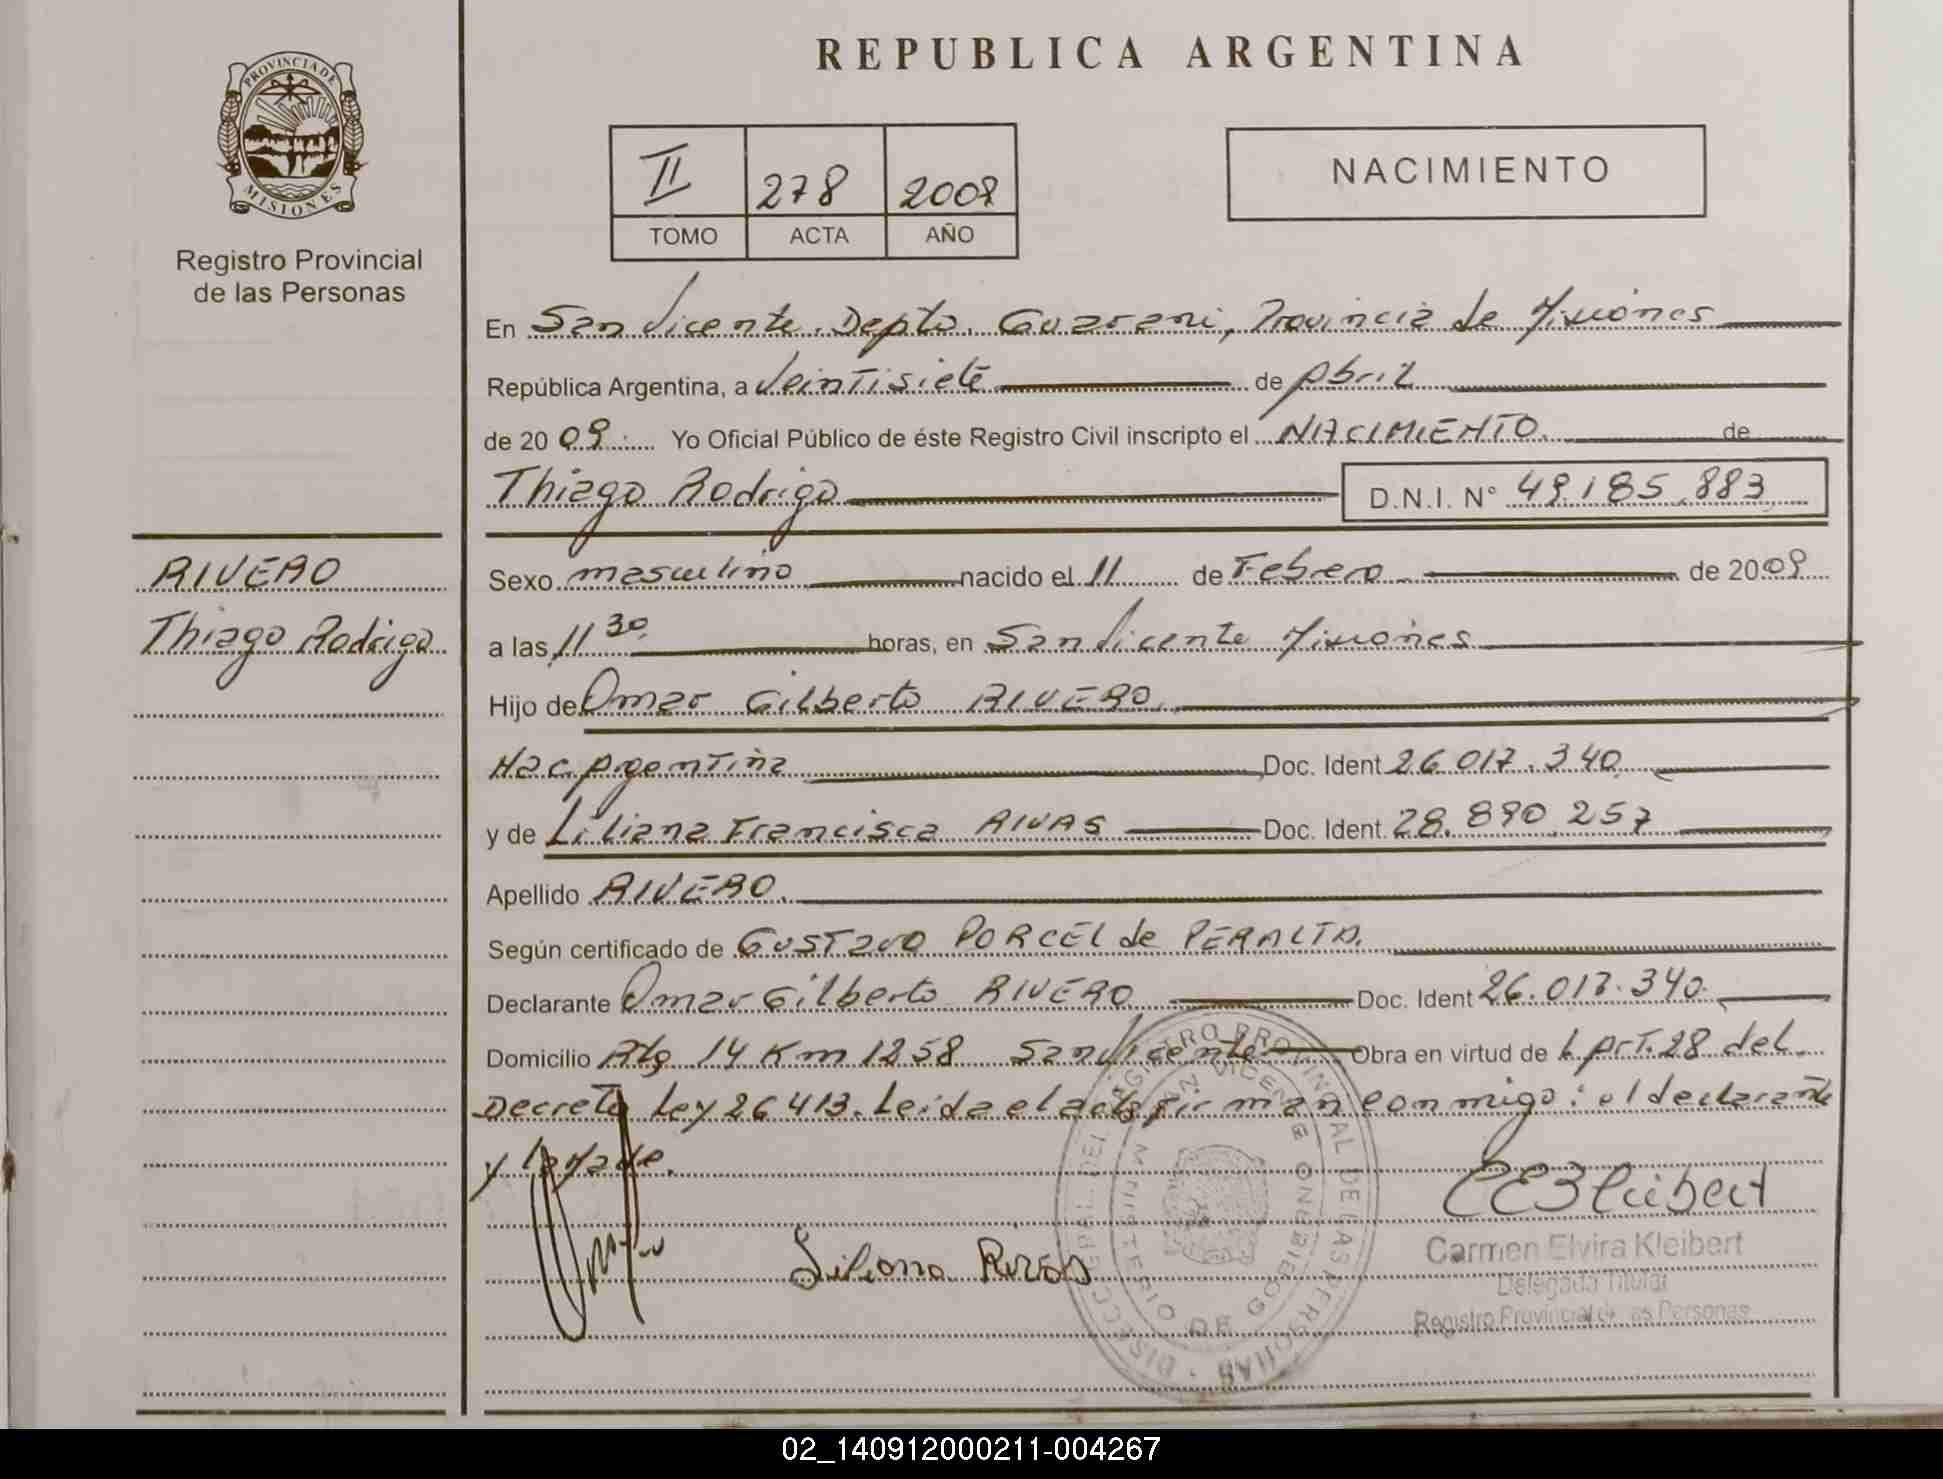 REPUBLICA ARGENTINA
PROVINCIA DE
MISIONES
Registro Provincial
de las Personas
II 278 2009
TOMO ACTA AÑO
NACIMIENTO
En San Vicente. Depto. Guarani, Provincia de Misiones
República Argentina, a Veintisiete de Abril
de 20 09. Yo Oficial Público de éste Registro Civil inscripto el NACIMIENTO. de
Thiago Rodrigo D.N.I. N° 49.185.883
RIVERO
Thiago Rodrigo
Sexo masculino nacido el 11 de Febrero de 2009
a las 11 30 horas, en San Vicente Misiones
Hijo de Omar Gilberto RIVERO.
Nac. Argentina Doc. Ident 26.017.340
y de Liliana Francisca RIVAS Doc. Ident. 28.890.257
Apellido RIVERO.
Según certificado de Gustavo PORCEL de PERALTA.
Declarante Omar Gilberto RIVERO Doc. Ident 26.017.340
Domicilio Ruta 14 Km 1258 San Vicente Obra en virtud de L. Art. 28 del
Decreto Ley 26413. Leida el acta firman conmigo: el declarante
y la Madre.
Liliana Rivas
CEKleibert
Carmen Elvira Kleibert
Delegada Titular
Registro Provincial de las Personas
MINISTERIO DE GOBIERNO
02_140912000211-004267